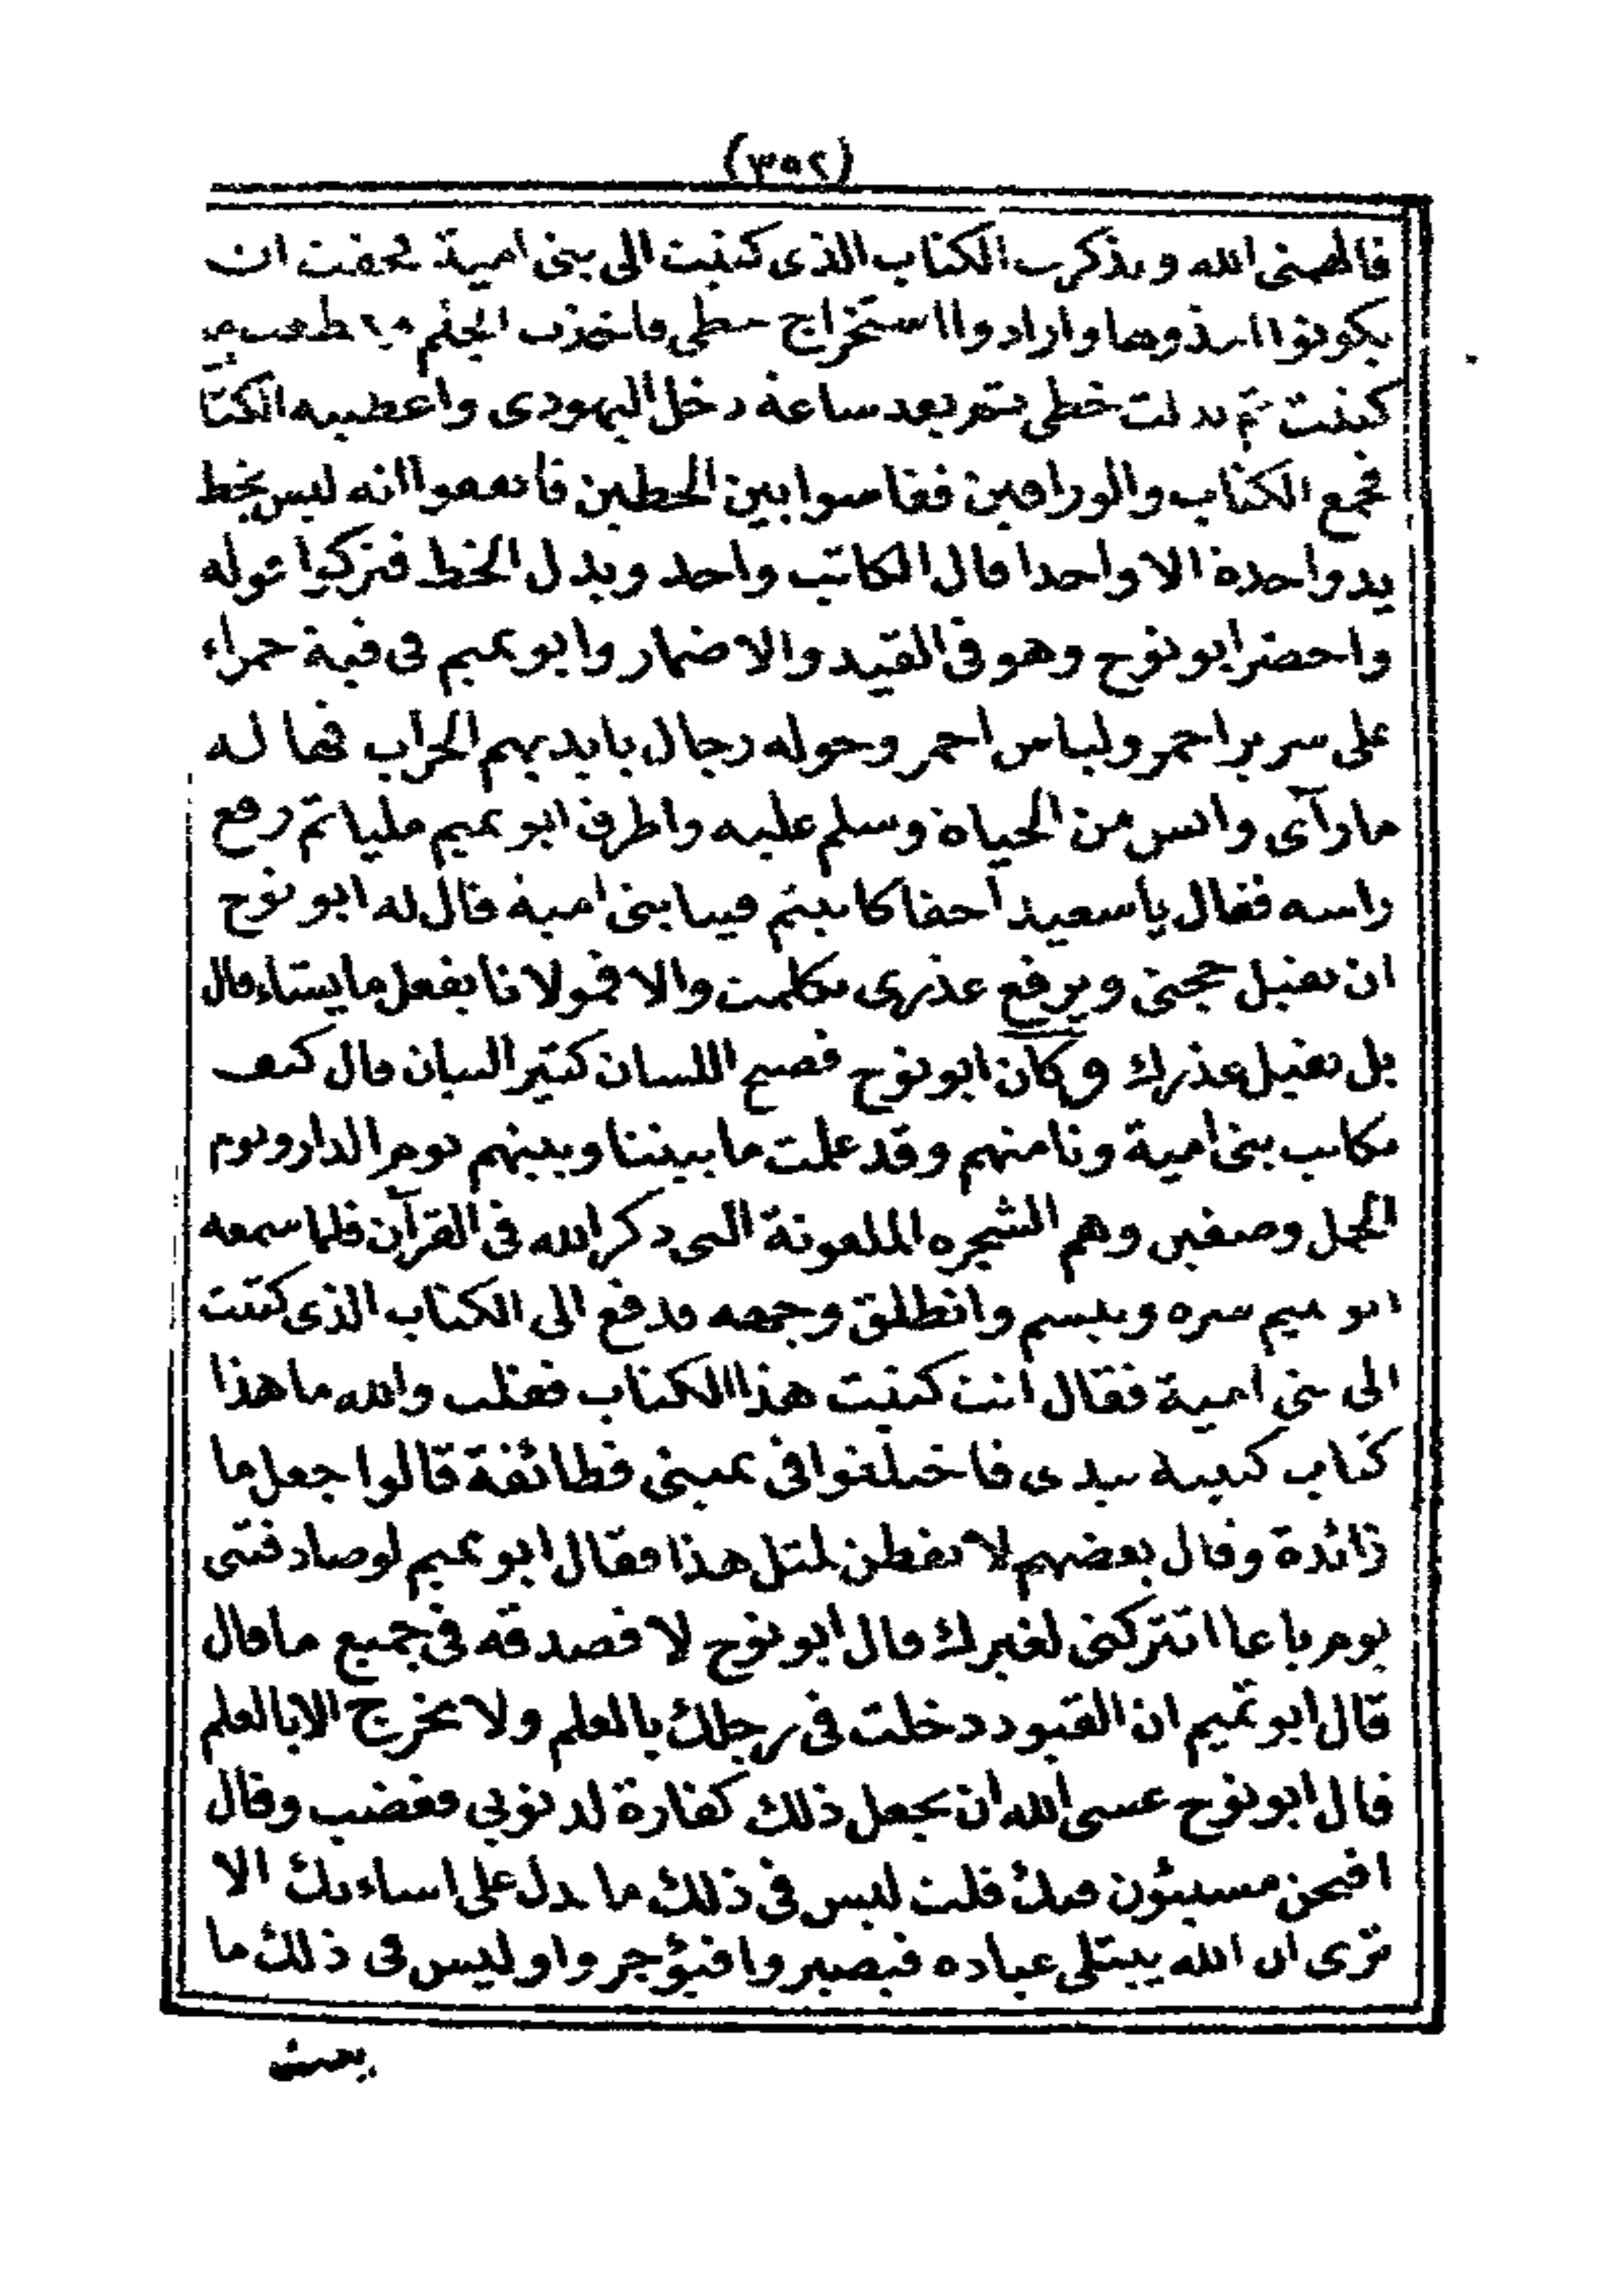 (٣٥٢)
فالهمنى الله وتذكرت الكتاب الذى كتبت الى بنى امية فخفت ان
يكونوا اخذوها وارادوا استخراج خطى فاخذت القلم
كتبت ثم بدلت خطى ثم بعد ساعة دخل اليهودى واعطيته الكتا
فجمع الكتاب والوراقين فقاسوا بين الخطين فاتفقوا انه ليس بخط
يد واحدة الا واحدا قال الكاتب واحد وبدل الخط فتركوا قوله
واحضر ابو نوح وهو فى القيد والاضمار وابو تميم فى قبة حمراء
على سرير احمر ولباس احمر وحوله رجال بايديهم الحراب فهاله
ما رآى وايس من الحياة وسلم عليه واطرق ابو تميم مليا ثم رفع
راسه فقال يا سعيد احقا كاتبتم فينا بنى امية قال له ابو نوح
ان تقبل حجتى ويرفع عذرى تكلمت والا فمولانا يفعل ما يشاء قال
بل نقبل عذرك وكان ابو نوح فصيح اللسان كثير البيان قال كيف
نكاتب بنى امية ونامنهم وقد علمت ما بيننا وبينهم يوم الدار ويوم
الجمل وصفين وهم الشجره الملعونة التى ذكر الله فى القرآن فلما سمعه
ابو تميم سره وتبسم وانطلق وجهه فدفع الى الكتاب الذى كتبت
الى بنى امية فقال انت كتبت هذا الكتاب فقلت والله ما هذا
كتاب كتبته بيدى فاختلفوا فى يمينى فطائفة قالوا جعل ما
زائدة وقال بعضهم لا تفطن لمثل هذا فقال ابو تميم لو صادفتنى
يوم باغا اتتركنى لغيرك قال ابو نوح لا فصدقه فى جميع ما قال
قال ابو تميم ان القيود دخلت فى رجلك بالعلم ولا تخرج الا بالعلم
قال ابو نوح عسى الله ان يجعل ذلك كفارة لذنوبي فغضب وقال
افنحن مسيئون فيك قلت ليس فى ذلك ما يدل على اساءتك الا
ترى ان الله يبتلى عباده فيصبروا فيؤجروا وليس فى ذلك ما
يعث